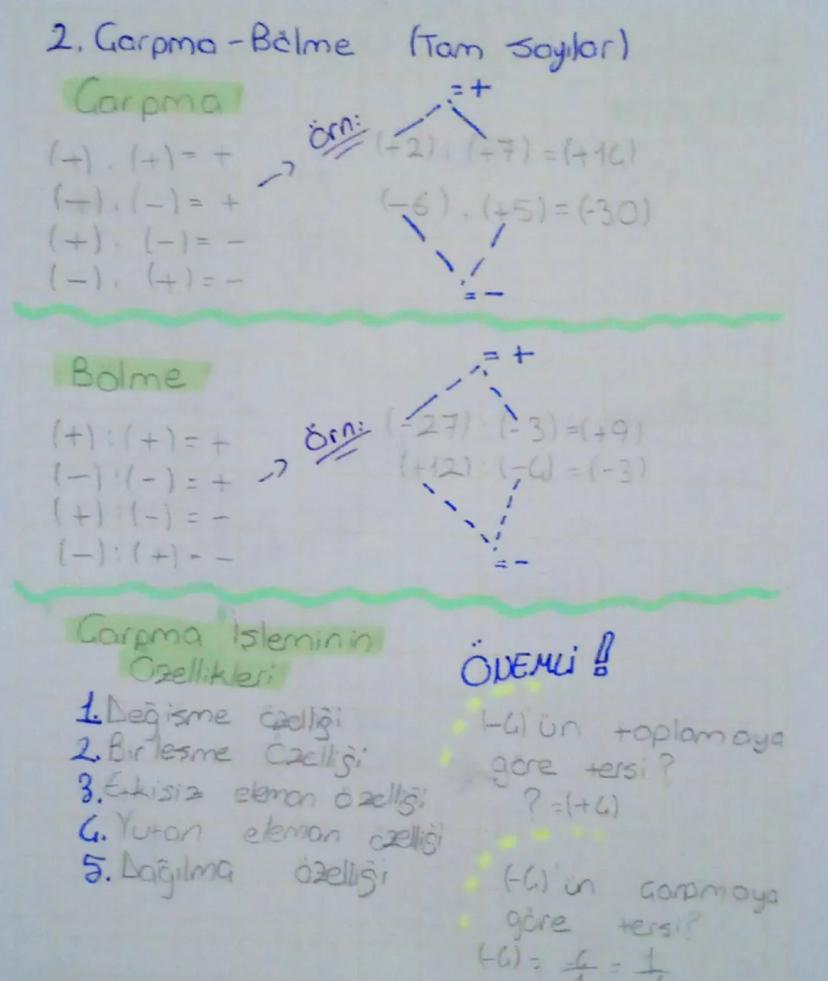 2. Çarpma - Bölme (Tam Sayılar)
Çarpma
(+) . (+) = +
(-) . (-) = +
(+) . (-) = -
(-) . (+) = -
Örn:
= +
(+2) . (+7) = (+14)
(-6) . (+5) = (-30)
= -
Bölme
(+) : (+) = +
(-) : (-) = +
(+) : (-) = -
(-) : (+) = -
Örn:
= +
(-27) : (-3) = (+9)
(+12) : (-4) = (-3)
= -
Çarpma İşleminin
Özellikleri
1. Değişme özelliği
2. Birleşme Özelliği
3. Etkisiz eleman özelliği
4. Yutan eleman özelliği
5. Dağılma özelliği
ÖNEMLİ !
(-4)'ün toplamaya
göre tersi ?
? = (+4)
(-4)'ün çarpmaya
göre tersi?
(-4) =